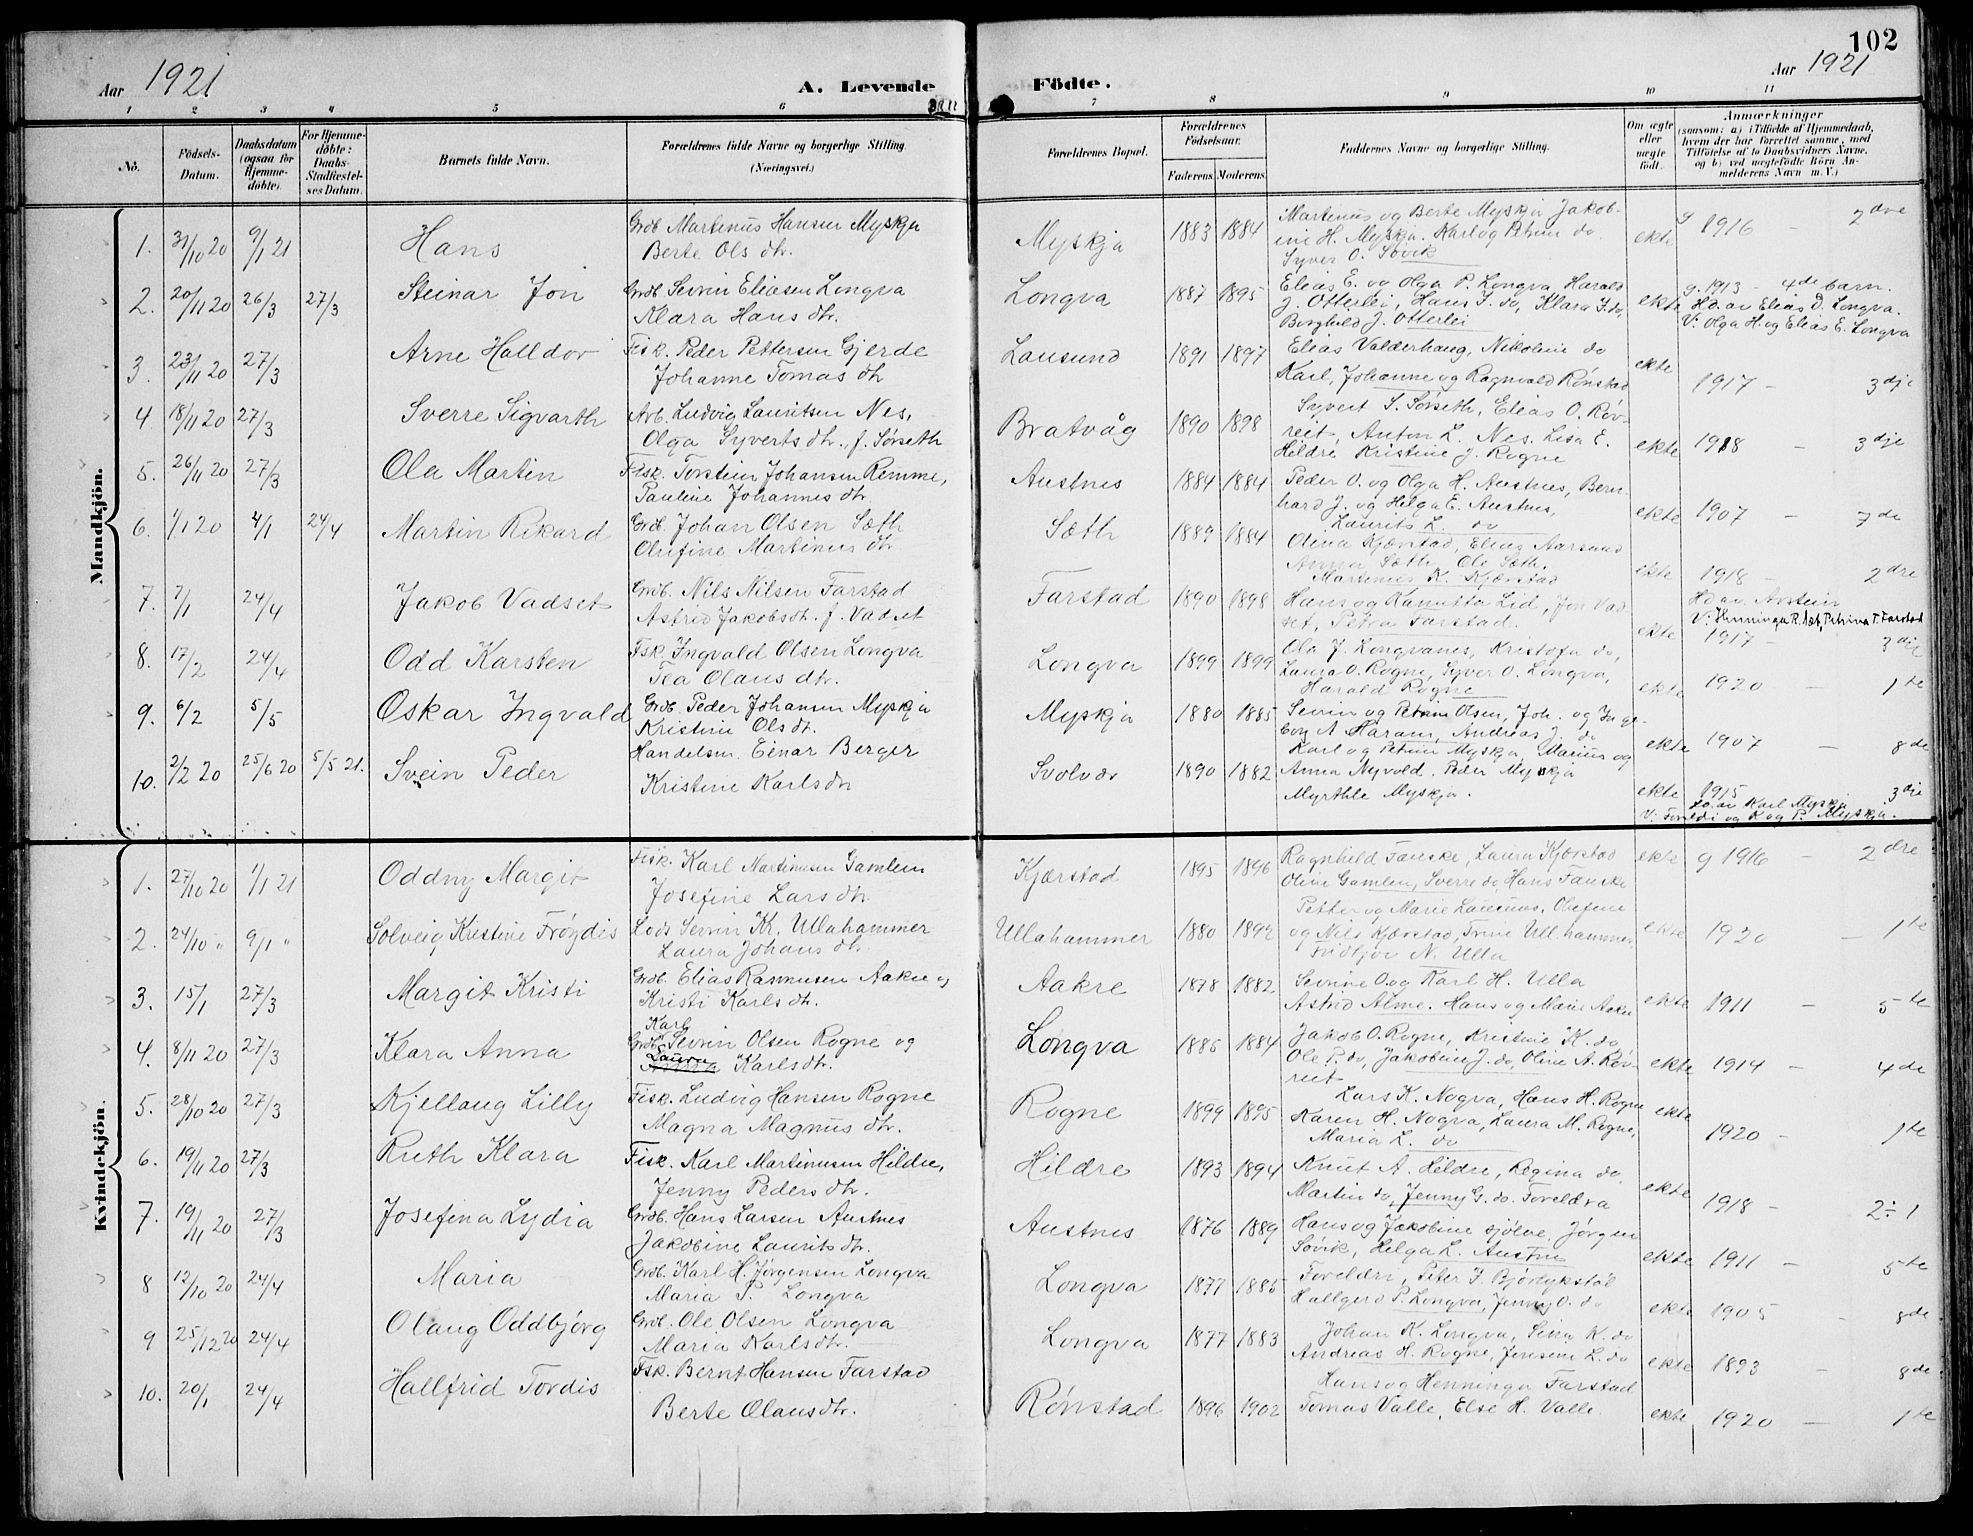 102
Aar 1921
A. Levende
Födte.
Aar 1921
1 2 3 4 5 6 7 8 9 10 11
No.
Födsels-Datum.
Daabsdatum (ogsaa for Hjemme-döbte).
For Hjemme-döbte: Daabs-Stadfæstel-ses Datum.
Barnets fulde Navn.
Forældrenes fulde Navne og borgerlige Stilling. (Næringsvei.)
Forældrenes Bopæl.
Forældrenes Födselsaar.
Faderens. Moderens.
Faddernes Navne og borgerlige Stilling.
Om ægte eller uægte födt.
Anmærkninger
(saasom: a) i Tilfælde af Hjemmedaab, hvem der har forrettet samme, med Tilföielse af to Daabsvidners Navne. og b) ved uægtefödte Börn An-melderens Navn m. V.)
Mandkjön.
1. 31/10 20 9/1 21 Hans Grdb Martinus Hansen Myskja
Berte Ols dtr. Myskja 1883 1884 Martinus og Berte Myskja Jakob-
ine H. Myskja. Karl og Petrine do.
Syver O. Søvik ekte g 1916 - 2 dre
2. 20/11 20 26/3 27/3 Steinar Jon Grdb. Sevrin Eliasen Longva
Klara Hans dtr. Longva 1887 1895 Elias E. og Olga P. Longva, Harald
J. Otterlei, Hans J. do, Klara J. do,
Borghild J. Otterlei ekte g. 1913 - 4de barn.
Hd. av Elias D. Longva.
V: Olga H. og Elias E. Longva
3. 23/11 20 27/3 Arne Halldor Fisk. Peder Pettersen Gjerde
Johanne Tomas dtr Lausund 1891 1897 Elias Valderhaug, Nikoline do
Karl, Johanne og Ragnvald Rønstad ekte 1917 - 3dje
4 18/11 20 27/3 Sverre Sigvarth Arb. Ludvig Lauritsen Nes,
Olga Syverts dtr. f. Sørseth Bratvåg 1890 1898 Syvert S. Sørseth, Elias O. Røv-
reit, Anton L. Nes. Lisa E.
Hildre Kristine J. Rogne ekte 1918 - 3dje
5. 26/11 20 27/3 Ola Martin Fisk. Torstein Johansen Remme,
Pauline Johannes dtr. Austnes 1884 1884 Peder O. og Olga H. Austnes, Bern-
hard J. og Helga E. Austnes,
Laurits L. do ekte 1907 - 7de
6. 1/1 20 4/1 24/4 Martin Rikard Grdb. Johan Olsen Sæth
Olufine Martinus dtr Sæth 1889 1884 Olina Kjærstad, Elias Aarsund
Anna Sæth, Ole Sæth.
Martinus K. Kjærstad ekte 1918 - 2dre
7. 7/1 24/4 Jakob Vadset Grdb. Nils Nilsen Farstad
Astrid Jakobsdtr. f. Vadset Farstad 1890 1898 Hans og Kanutta Lid, Jon Vad-
set, Petra Farstad. ekte Hd av. Avstein
V: Henninga R. Sæt, Petrina T. Farstad
1917 - 3dje
8. 17/2 24/4 Odd Karsten Fsk. Ingvald Olsen Longva
Tea Olaus dtr. Longva 1899 1899 Ola J. Longvanes, Kristofa do,
Laura O. Rogne, Syver O. Longva,
Harald Rogne ekte 1920 - 1te
9. 6/2 5/5 Oskar Ingvald Grdb. Peder Johansen Myskja
Kristine Ols dtr. Myskja 1880 1885 Sevrin og Petrine Olsen, Joh. og Inge-
borg A Haram, Andreas J. do
Karl og Petrine Myskja, Marius og ekte 1907 - 8de
10. 2/2 20 25/6 20 5/5 21. Svein Peder Handelsm. Einar Berger
Kristine Karlsdtr Svolvær 1890 1882 Anna Nyvold. Peder Myskja
Myrthle Myskja. ekte 1915 3dje
Hd av Karl Myskja
V: Foreldre og K og P. Myskja.
Kvindekjön.
1. 27/10 20 1/1 21 Oddny Margit Fisk. Karl Martinusen Gamlem
Josefine Lars dtr. Kjærstad 1895 1896 Ragnhild Fauske, Laura Kjærstad
Oline Gamlem, Sverre do Hans Fauske ekte g 1916 - 2dre
2. 24/10 " 9/1 " Solveig Kristine Frøydis Lods Sevrin Kr. Ullahammer
Laura Johans dtr. Ullahammer 1880 1892 Petter og Marie Lausnes, Olufine
og Nils Kjærstad, Trine Ullahammer,
Fridtjov N. Ulla ekte 1920 - 1te
3. 15/1 27/3 Margit Kristi Grdb. Elias Rasmusen Aakre og
Kristi Karls dtr. Aakre 1878 1882 Sevrine O. og Karl H. Ulla
Astrid Alme. Hans og Marie Aakre ekte 1911 - 5te
4. 8/11 20 27/3 Klara Anna Karl
Grdb. Sevrin Olsen Rogne og
Laura Karls dtr. Longva 1885 1884 Jakob O. Rogne, Kristine K. do,
Ole P. do, Jakobine J. do, Oline A. Røv-
reit ekte 1914 - 4de
5. 28/10 20 27/3 Kjellaug Lilly Fisk. Ludvig Hansen Rogne
Magna Magnus dtr. Rogne 1899 1895 Lars K. Nogva, Hans H. Rogne
Karen H. Nogva, Laura M. Rogne,
Maria L. do ekte 1920 - 1te
6. 19/11 20 27/3 Ruth Klara Fisk. Karl Martinusen Hildre,
Jenny Peders dtr. Hildre 1893 1894 Knut A. Hildre, Regina do.
Martin do, Jenny G. do. Foreldra ekte 1918 - 2 ÷ 1
7. 19/11 20 27/3 Josefina Lydia Grdb. Hans Larsen Austnes
Jakobine Laurits dtr. Austnes 1876 1889 Hans og Jakobine sjølve, Jørgen
Søvik, Helga L. Austne ekte 1911 - 5te
8 12/10 20 24/4 Maria Grdb. Karl H. Jørgensen Longva
Maria P. Longva Longva 1877 1885 Foreldri, Peter J. Bjørlykstøl
Hallgerd P. Longva, Jenny O. do ekte 1905 - 8de
9 25/12 20 24/4 Olaug Oddbjørg Grdb. Ole Olsen Longva
Maria Karls dtr. Longva 1877 1883 Johan K. Longva, Sina K. do
Andreas H. Rogne, Jensine L. do ekte 1893 - 8de
10. 20/1 24/4 Hallfrid Tordis Fsk. Bernt Hansen Farstad
Berte Olausdtr. Rønstad 1896 1902 Hans og Henninga Farstad
Tomas Valle, Else H. Valle. ekte 1920 - 1te